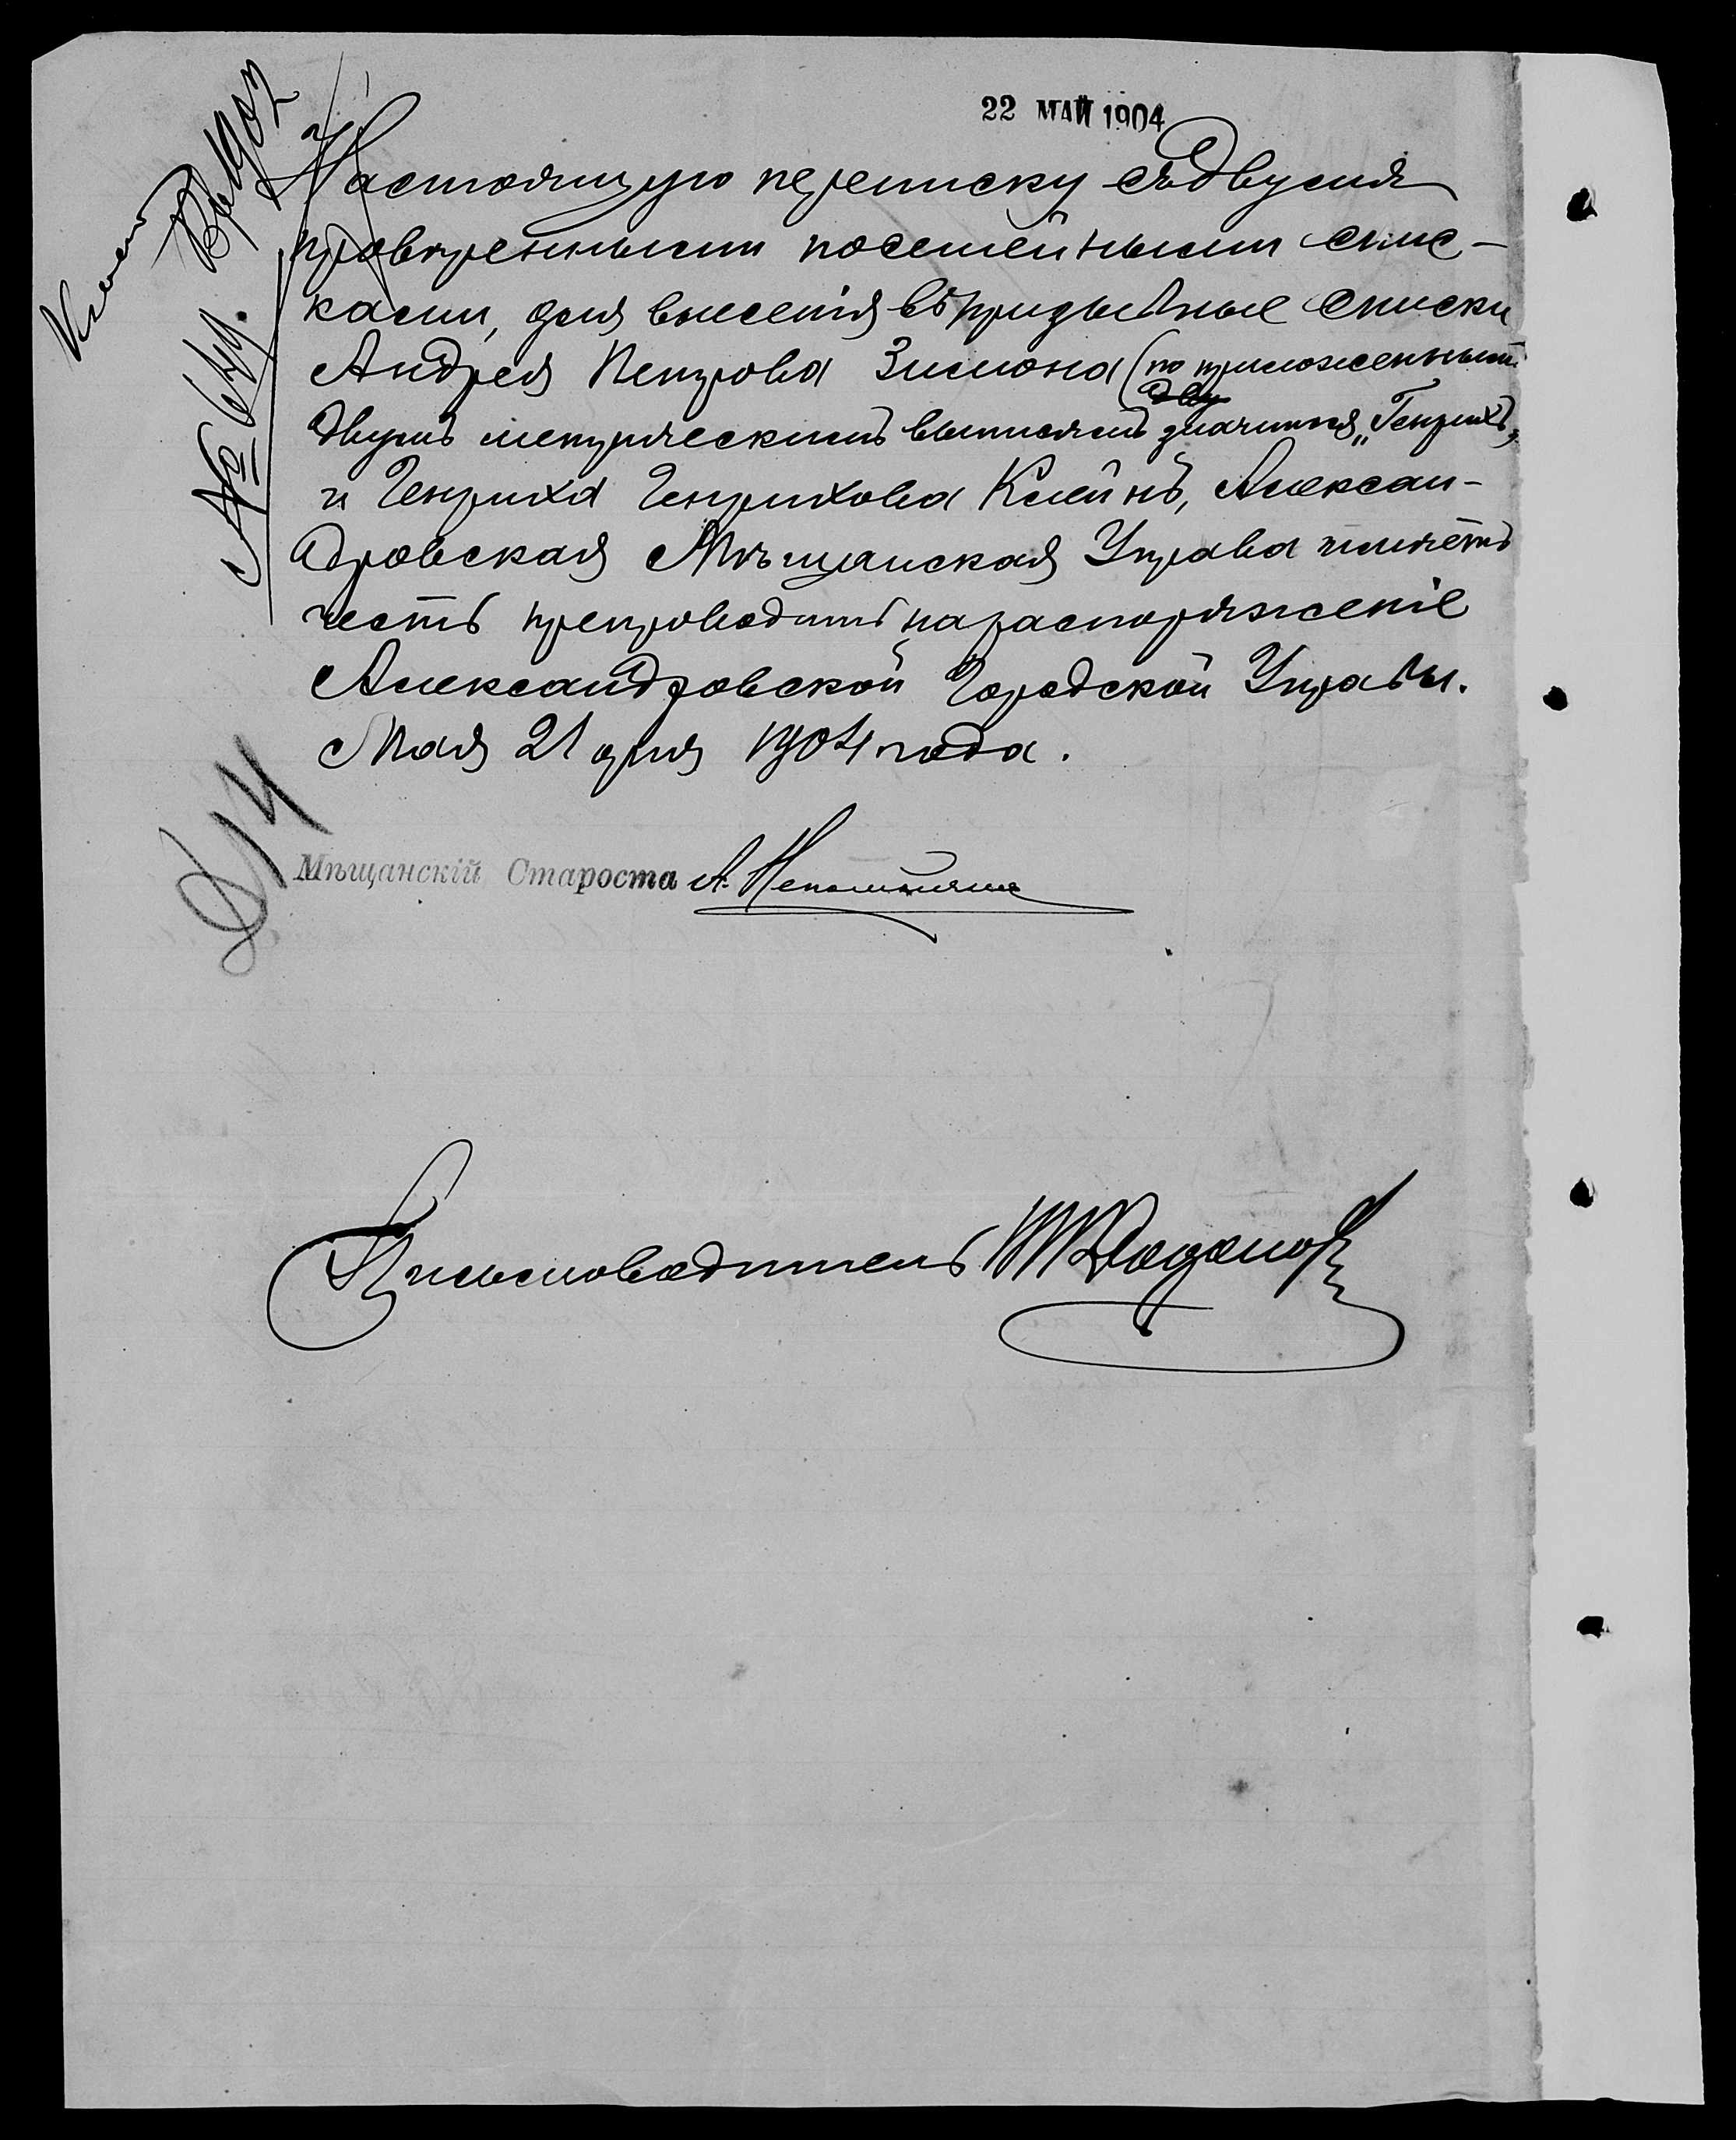 22 МАЙ 1904
Настоящую переписку съ двумя
провѣренными посемейными спис-
ками, для внесенія въ призывные списки
Андрея Петрова Зимона (по приложеннымъ
двумъ метрическимъ выписямъ значится „Генрихъ"
и Генриха Генрихова Клейнъ, Алексан-
дровская Мѣщанская Управа имѣетъ
честь препроводить на распоряженіе
Александровской Городской Управы.
Мая 21 дня 1904 года.
№ 614.
Мѣщанскій Староста А.
Письмоводитель